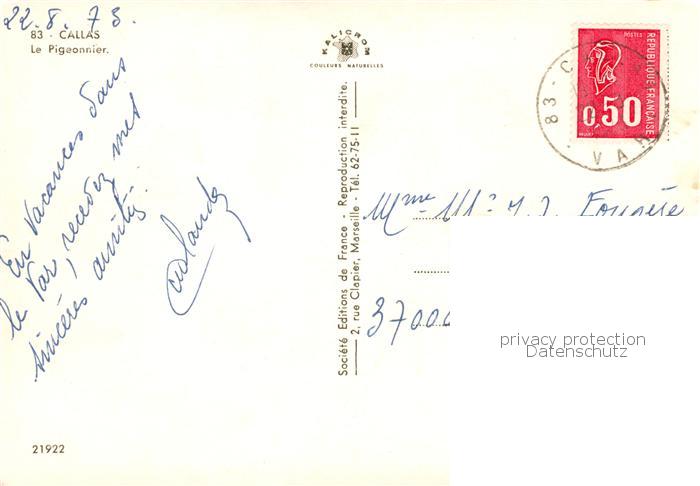 22.8.73.
83 - CALLAS
Le Pigeonnier.
En Vacances dans
le Var, recevez mes
sincères amitiés.
KALICROM
COULEURS NATURELLES
Société Editions de France - Reproduction interdite.
2, rue Clapier, Marseille - Tél. 62-75-11
POSTES
REPUBLIQUE FRANÇAISE
0,50
83 - C
VAR
Mme Mr
37000
privacy protection
Datenschutz
21922